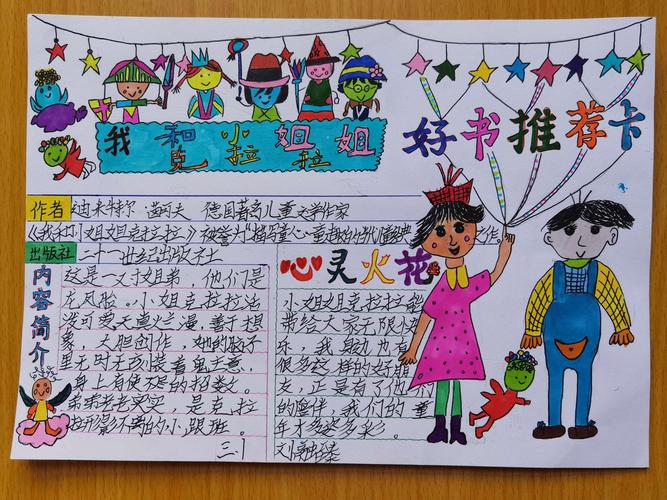 我和小姐姐
克拉拉
好书推荐卡
作者 迪米特尔·茵可夫 德国著名儿童文学作家
《我和小姐姐克拉拉》被誉为"描写童心童趣的当代儿童经典之作。
出版社 二十一世纪出版社
内容简介
这是一对姐弟,他们是
龙凤胎。小姐克拉拉活
泼可爱天真烂漫,善于想
象,大胆创作,她的脑子
里无时无刻装着鬼主意,
身上有使不尽的招数。
弟弟老老实实,是克拉
拉形影不离的小跟班。
三.1
心灵火花
小姐姐克拉拉能
带给大家无限快
乐,我身边也有
很多这样的好朋
友,正是有了他们
的陪伴,我们的童
年才多姿多彩。